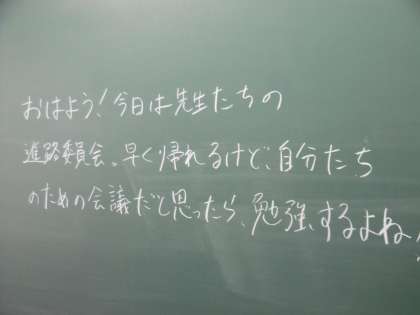 おはよう!今日は先生たちの
進路委員会。早く帰れるけど、自分たち
のための会議だと思ったら、勉強、するよね!